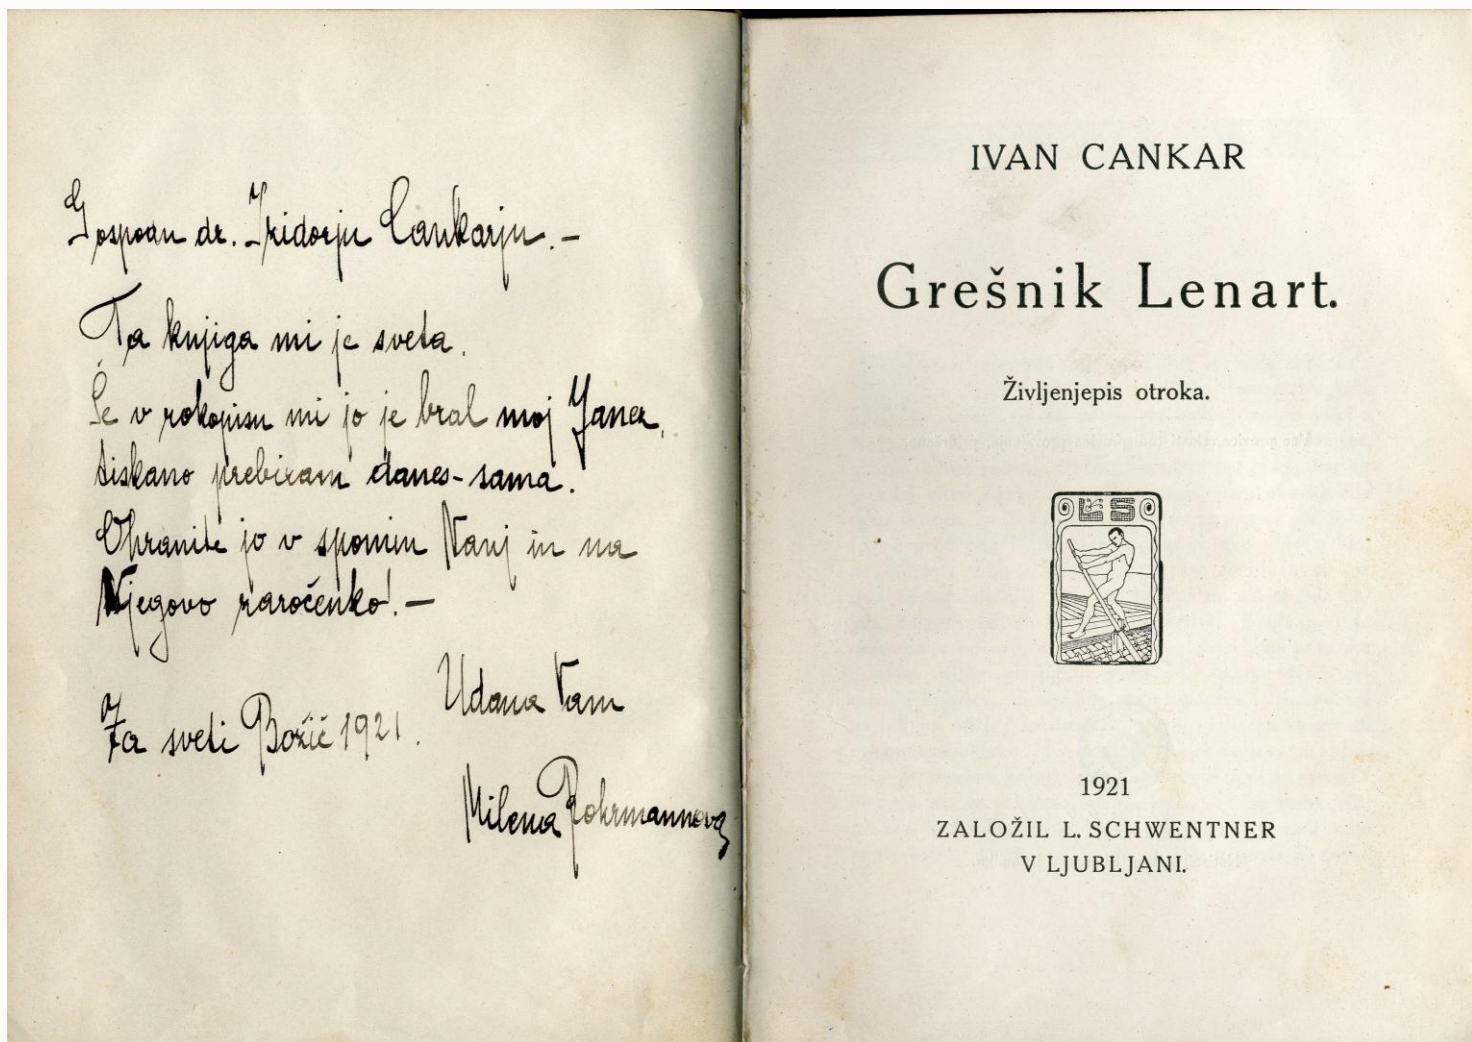 Gospodu dr. Izidorju Cankarju. –
Ta knjiga mi je sveta.
Še v rokopisu mi jo je bral moj Janez,
tiskano prebiram danes - sama.
Ohranite jo v spomin Nanj in na
Njegovo zaročenko! –
Udana Vam
Za sveti Božič 1921.
Milena Rohrmannova
IVAN CANKAR
Grešnik Lenart.
Življenjepis otroka.
LS
1921
ZALOŽIL L. SCHWENTNER
V LJUBLJANI.